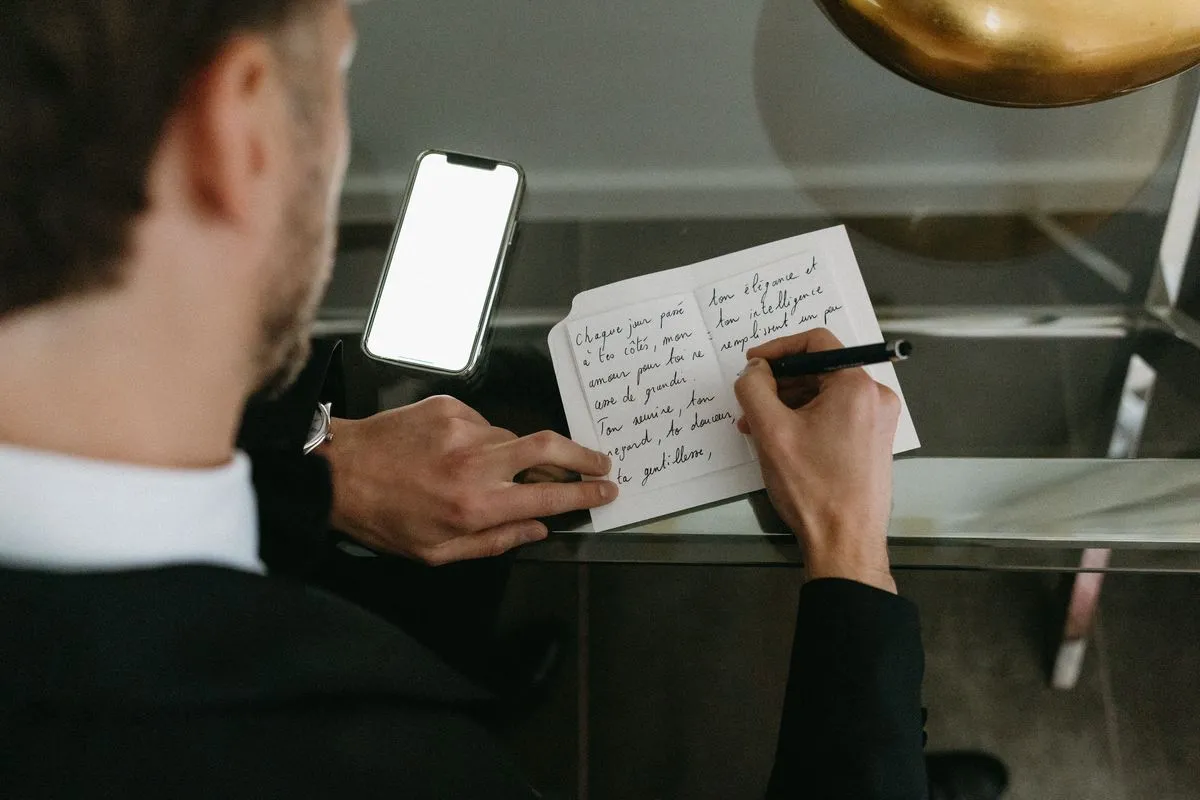 Chaque jour passé
à tes côtés, mon
amour pour toi ne
cesse de grandir.
Ton sourire, ton
regard, ta douceur,
ta gentillesse,
ton élégance et
ton intelligence
remplissent un peu